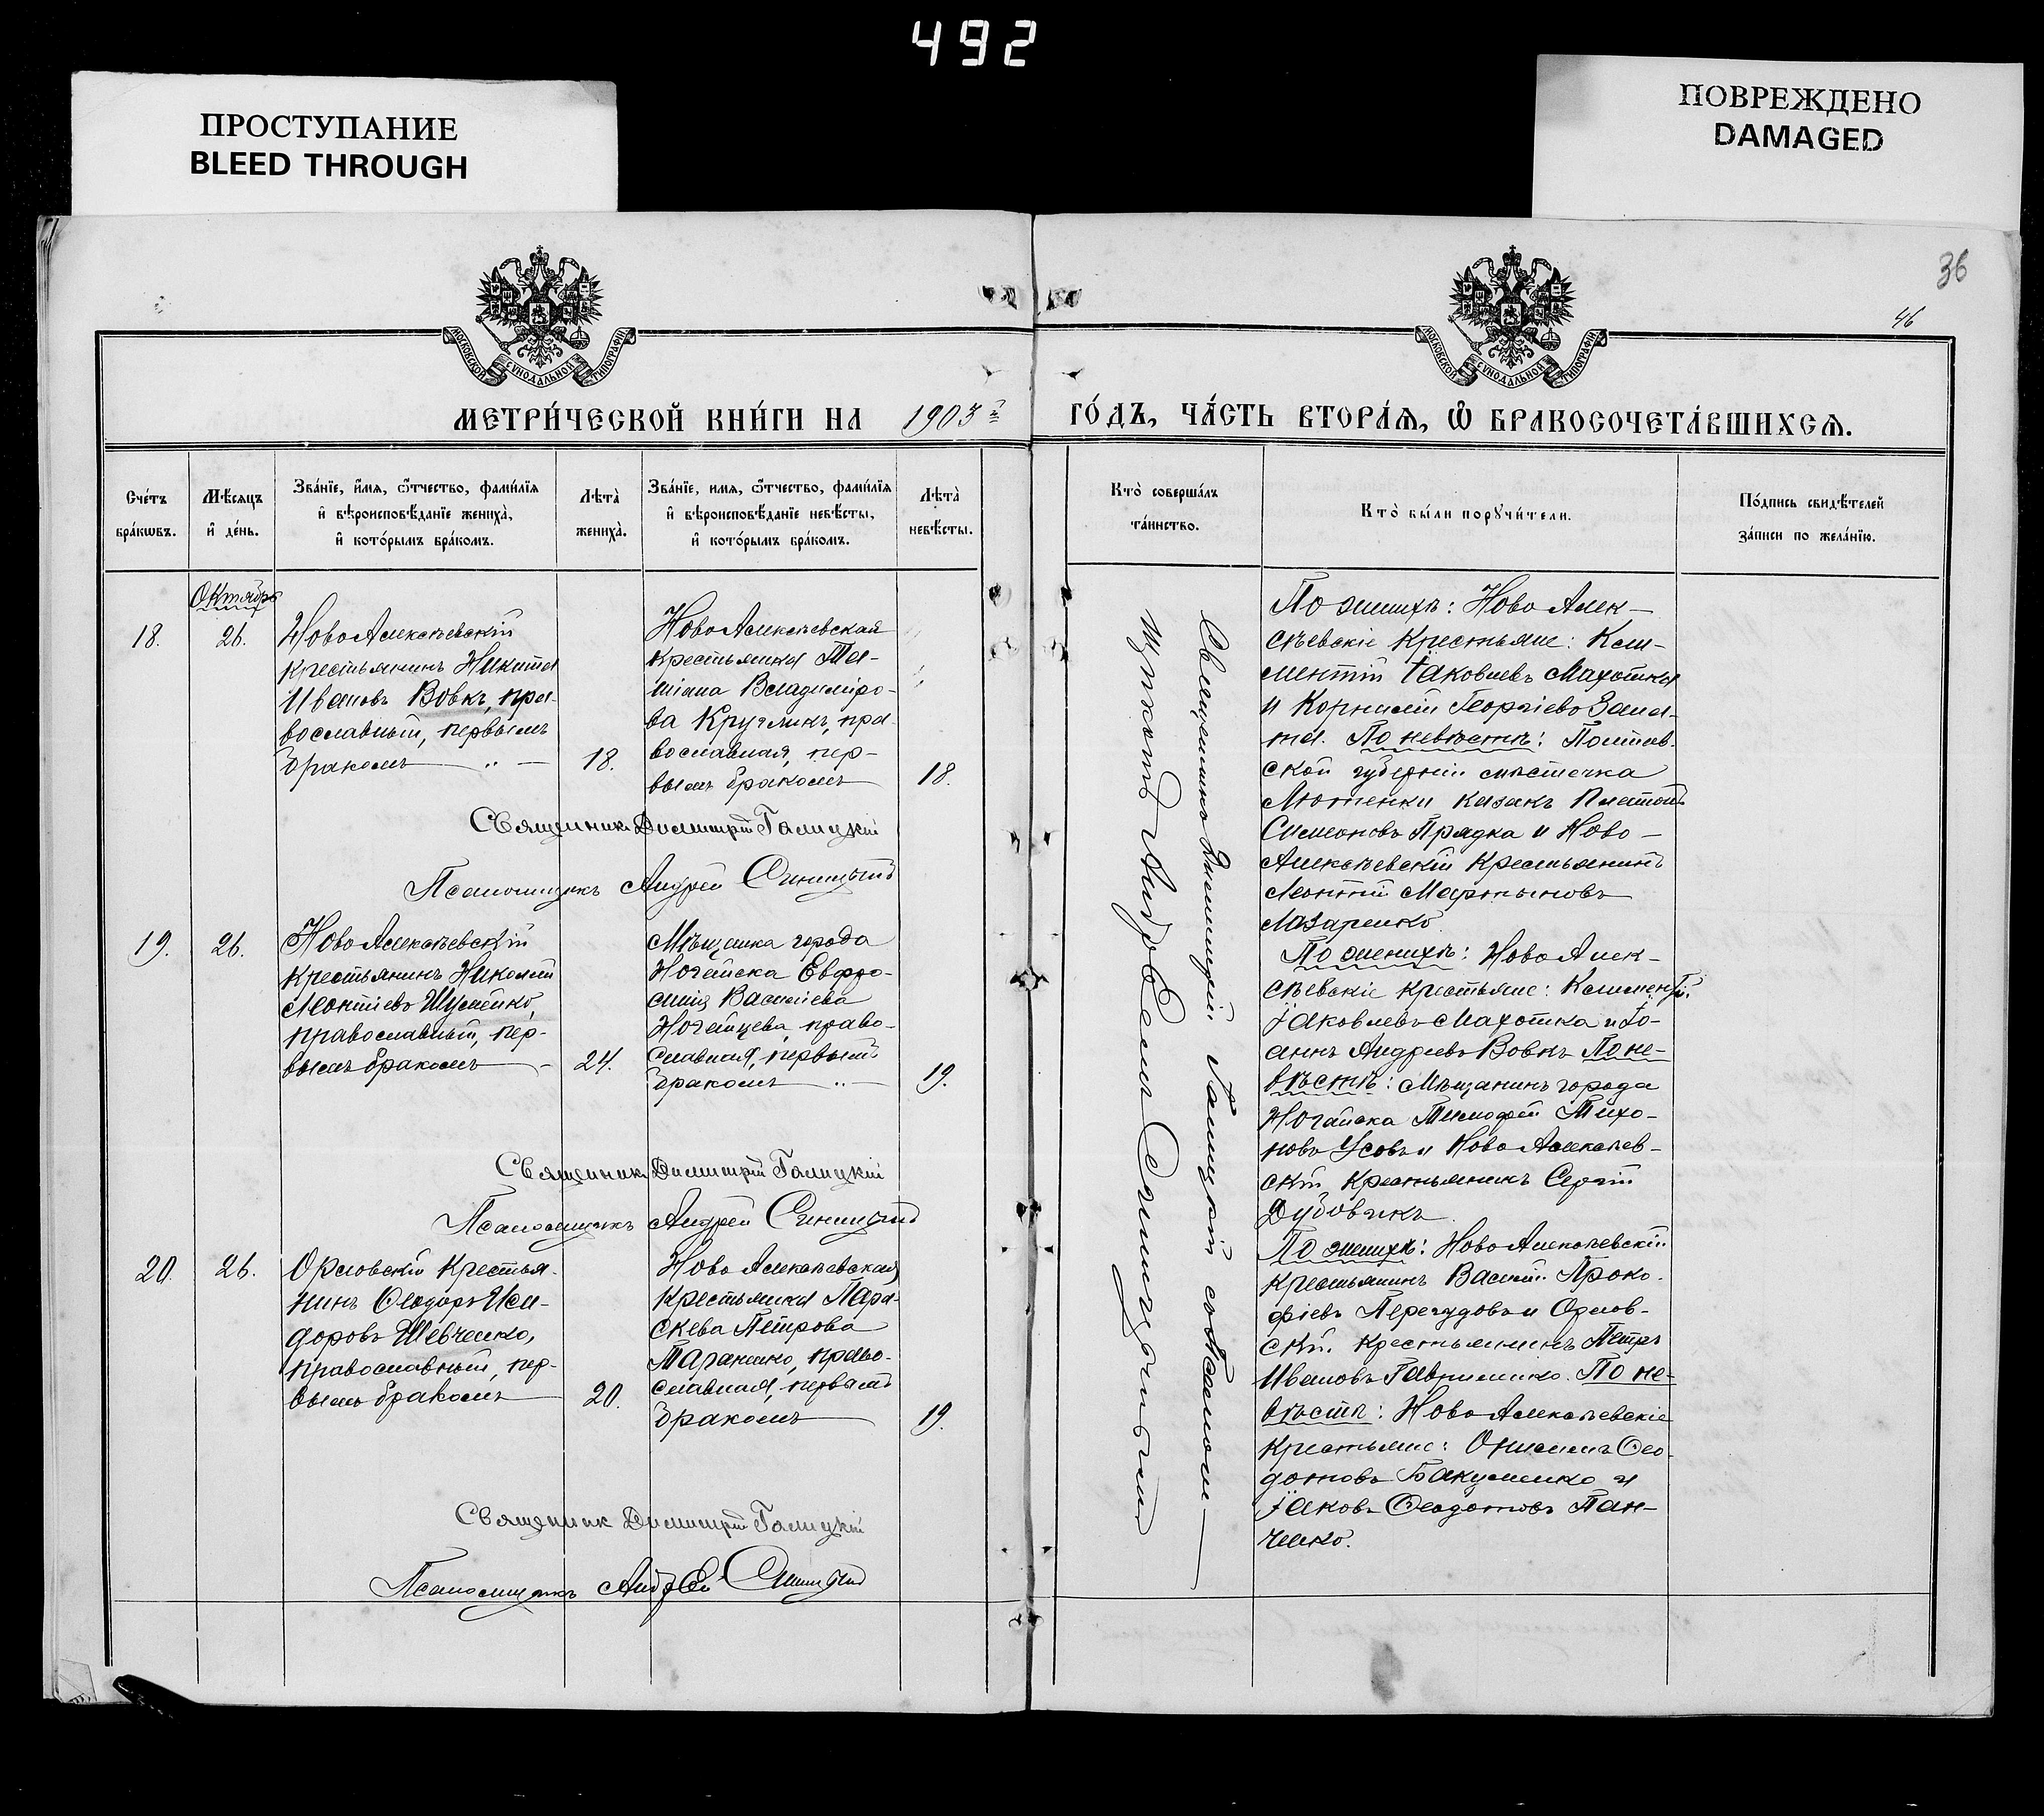 492
ПРОСТУПАНИЕ
BLEED THROUGH
ПОВРЕЖДЕНО
DAMAGED
36
46
МОСКОВСКОЙ СѴНОДАЛЬНОЙ ТИПОГРАФІИ
МОСКОВСКОЙ СѴНОДАЛЬНОЙ ТИПОГРАФІИ
МЕТРИ́ЧЕСКОЙ КНИ́ГИ НА 1903й
ГО́ДЪ, ЧА́СТЬ ВТОРА́Я, Ѽ БРАКОСОЧЕТА́ВШИХСЯ.
Сче́тъ бра́кѡвъ.
Мѣ́сяцъ и҆ де́нь.
Зва́нїе, и҆́мя, ѻ҆́тчество, фами́лїя
и҆ вѣроисповѣ́данїе жениха̀,
и҆ кото́рымъ бра́комъ.
Лѣта̀ жениха̀.
Зва́нїе, имя, ѻ҆́тчество, фами́лїя
и҆ вѣроисповѣ́данїе невѣ́сты,
и҆ кото́рымъ бра́комъ.
Лѣта̀ невѣ́сты.
Кто̀ соверша́лъ
та́инство.
Кто̀ бы́ли порꙋчи́тели.
По́дпись свидѣ́телей
за́писи по жела́нїю.
Октябрь
18.
26.
НовоАлексѣевскій
крестьянинъ Никита
Ивановъ Вовкъ, пра-
вославный, первымъ
бракомъ
18.
НовоАлексѣевская
крестьянка Та-
тіана Владиміро-
ва Кругликъ, пра-
вославная, пер-
вымъ бракомъ
18.
Священникъ Димитрій Галицкій
Псаломщикъ Андрей Синицынъ
19.
26.
НовоАлексѣевскій
крестьянинъ Николай
Леонтіевъ Шумейко,
православный, пер-
вымъ бракомъ
24.
Мѣщанка города
Ногайска Евфро-
синія Василіева
Ногайцева, право-
славная, первымъ
бракомъ
19.
Священникъ Димитрій Галицкій
Псаломщикъ Андрей Синицынъ
20.
26.
Орловскій крестья-
нинъ Ѳеодоръ Иси-
доровъ Шевченко,
православный, пер-
вымъ бракомъ
20.
Ново Алексѣевская
крестьянка Пара-
скева Петрова
Тараненко, право-
славная, первымъ
бракомъ
19.
Священникъ Димитрій Галицкій
Псаломщикъ Андрей Синицынъ
Священникъ Димитрій Галицкій съ Псалом-
щикомъ Андреемъ Синицынымъ
По женихѣ: Ново Алек-
сѣевскіе крестьяне: Кли-
ментій Іаковлевъ Махотка
и Корнилій Георгіевъ
По невѣстѣ: Полтав-
ской губерніи мѣстечка
Лютенки казакъ Платонъ
Симеоновъ Прядка и Ново-
Алексѣевскій крестьянинъ
Леонтій Мартыновъ
Лазаренко.
По женихѣ: Ново Алек-
сѣевскіе крестьяне: Климентій
Іаковлевъ Махотка и Іо-
аннъ Андреевъ Вовкъ. По не-
вѣстѣ: Мѣщанинъ города
Ногайска Тимофей Тихо-
новъ Усовъ и Ново Алексѣев-
скій крестьянинъ Сергій
Дубовикъ.
По женихѣ: НовоАлексѣевскій
крестьянинъ Василій Проко-
фіевъ Перегудовъ и Орлов-
скій крестьянинъ Петръ
Ивановъ Гавриленко. По не-
вѣстѣ: Ново Алексѣевскіе
крестьяне: Онисимъ Ѳео-
дотовъ Бакуменко и
Іаковъ Ѳеодотовъ Пан-
ченко.